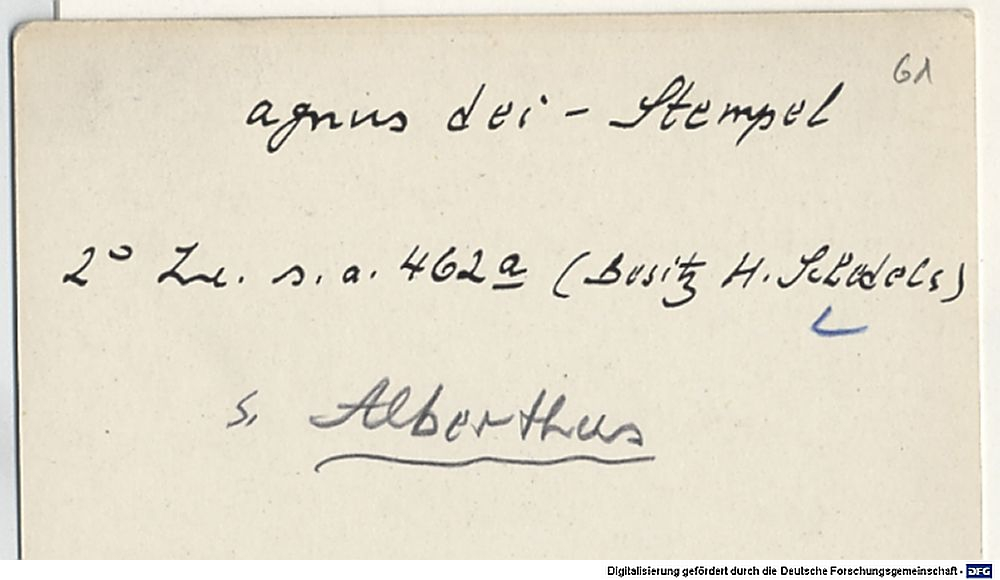 61
agnus dei - Stempel
2° Inc. s. a. 462a (Besitz H. Schedels)
s. Alberthus
Digitalisierung gefördert durch die Deutsche Forschungsgemeinschaft - DFG